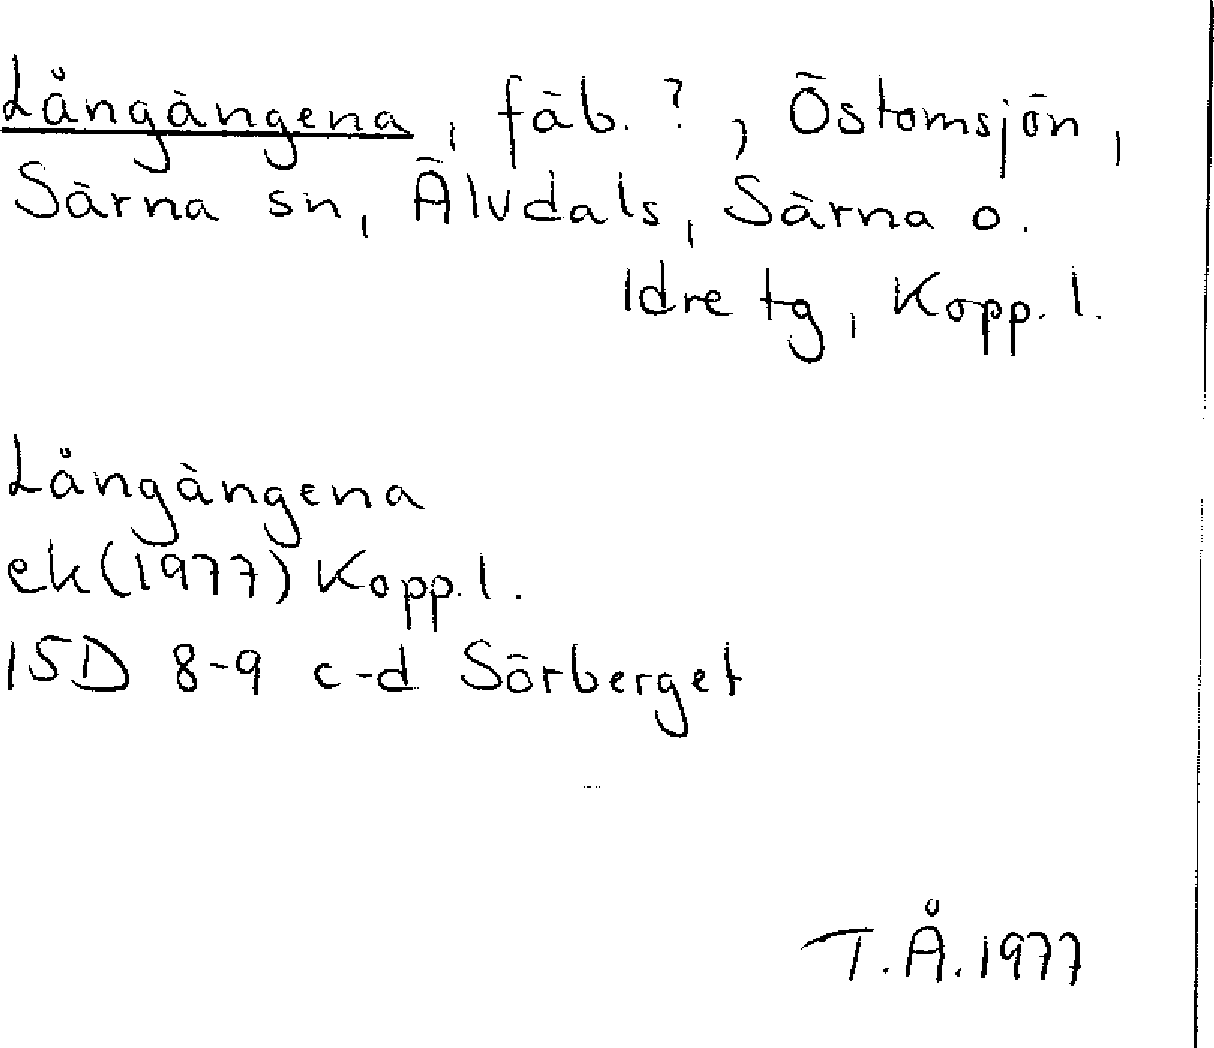 Långängena, fäb. ?, Östomsjön,
Särna sn, Älvdals, Särna o.
Idre tg, Kopp. l.
Långängena
ek (1977) Kopp. l.
15D 8-9 c-d Sörberget
T.Å. 1977